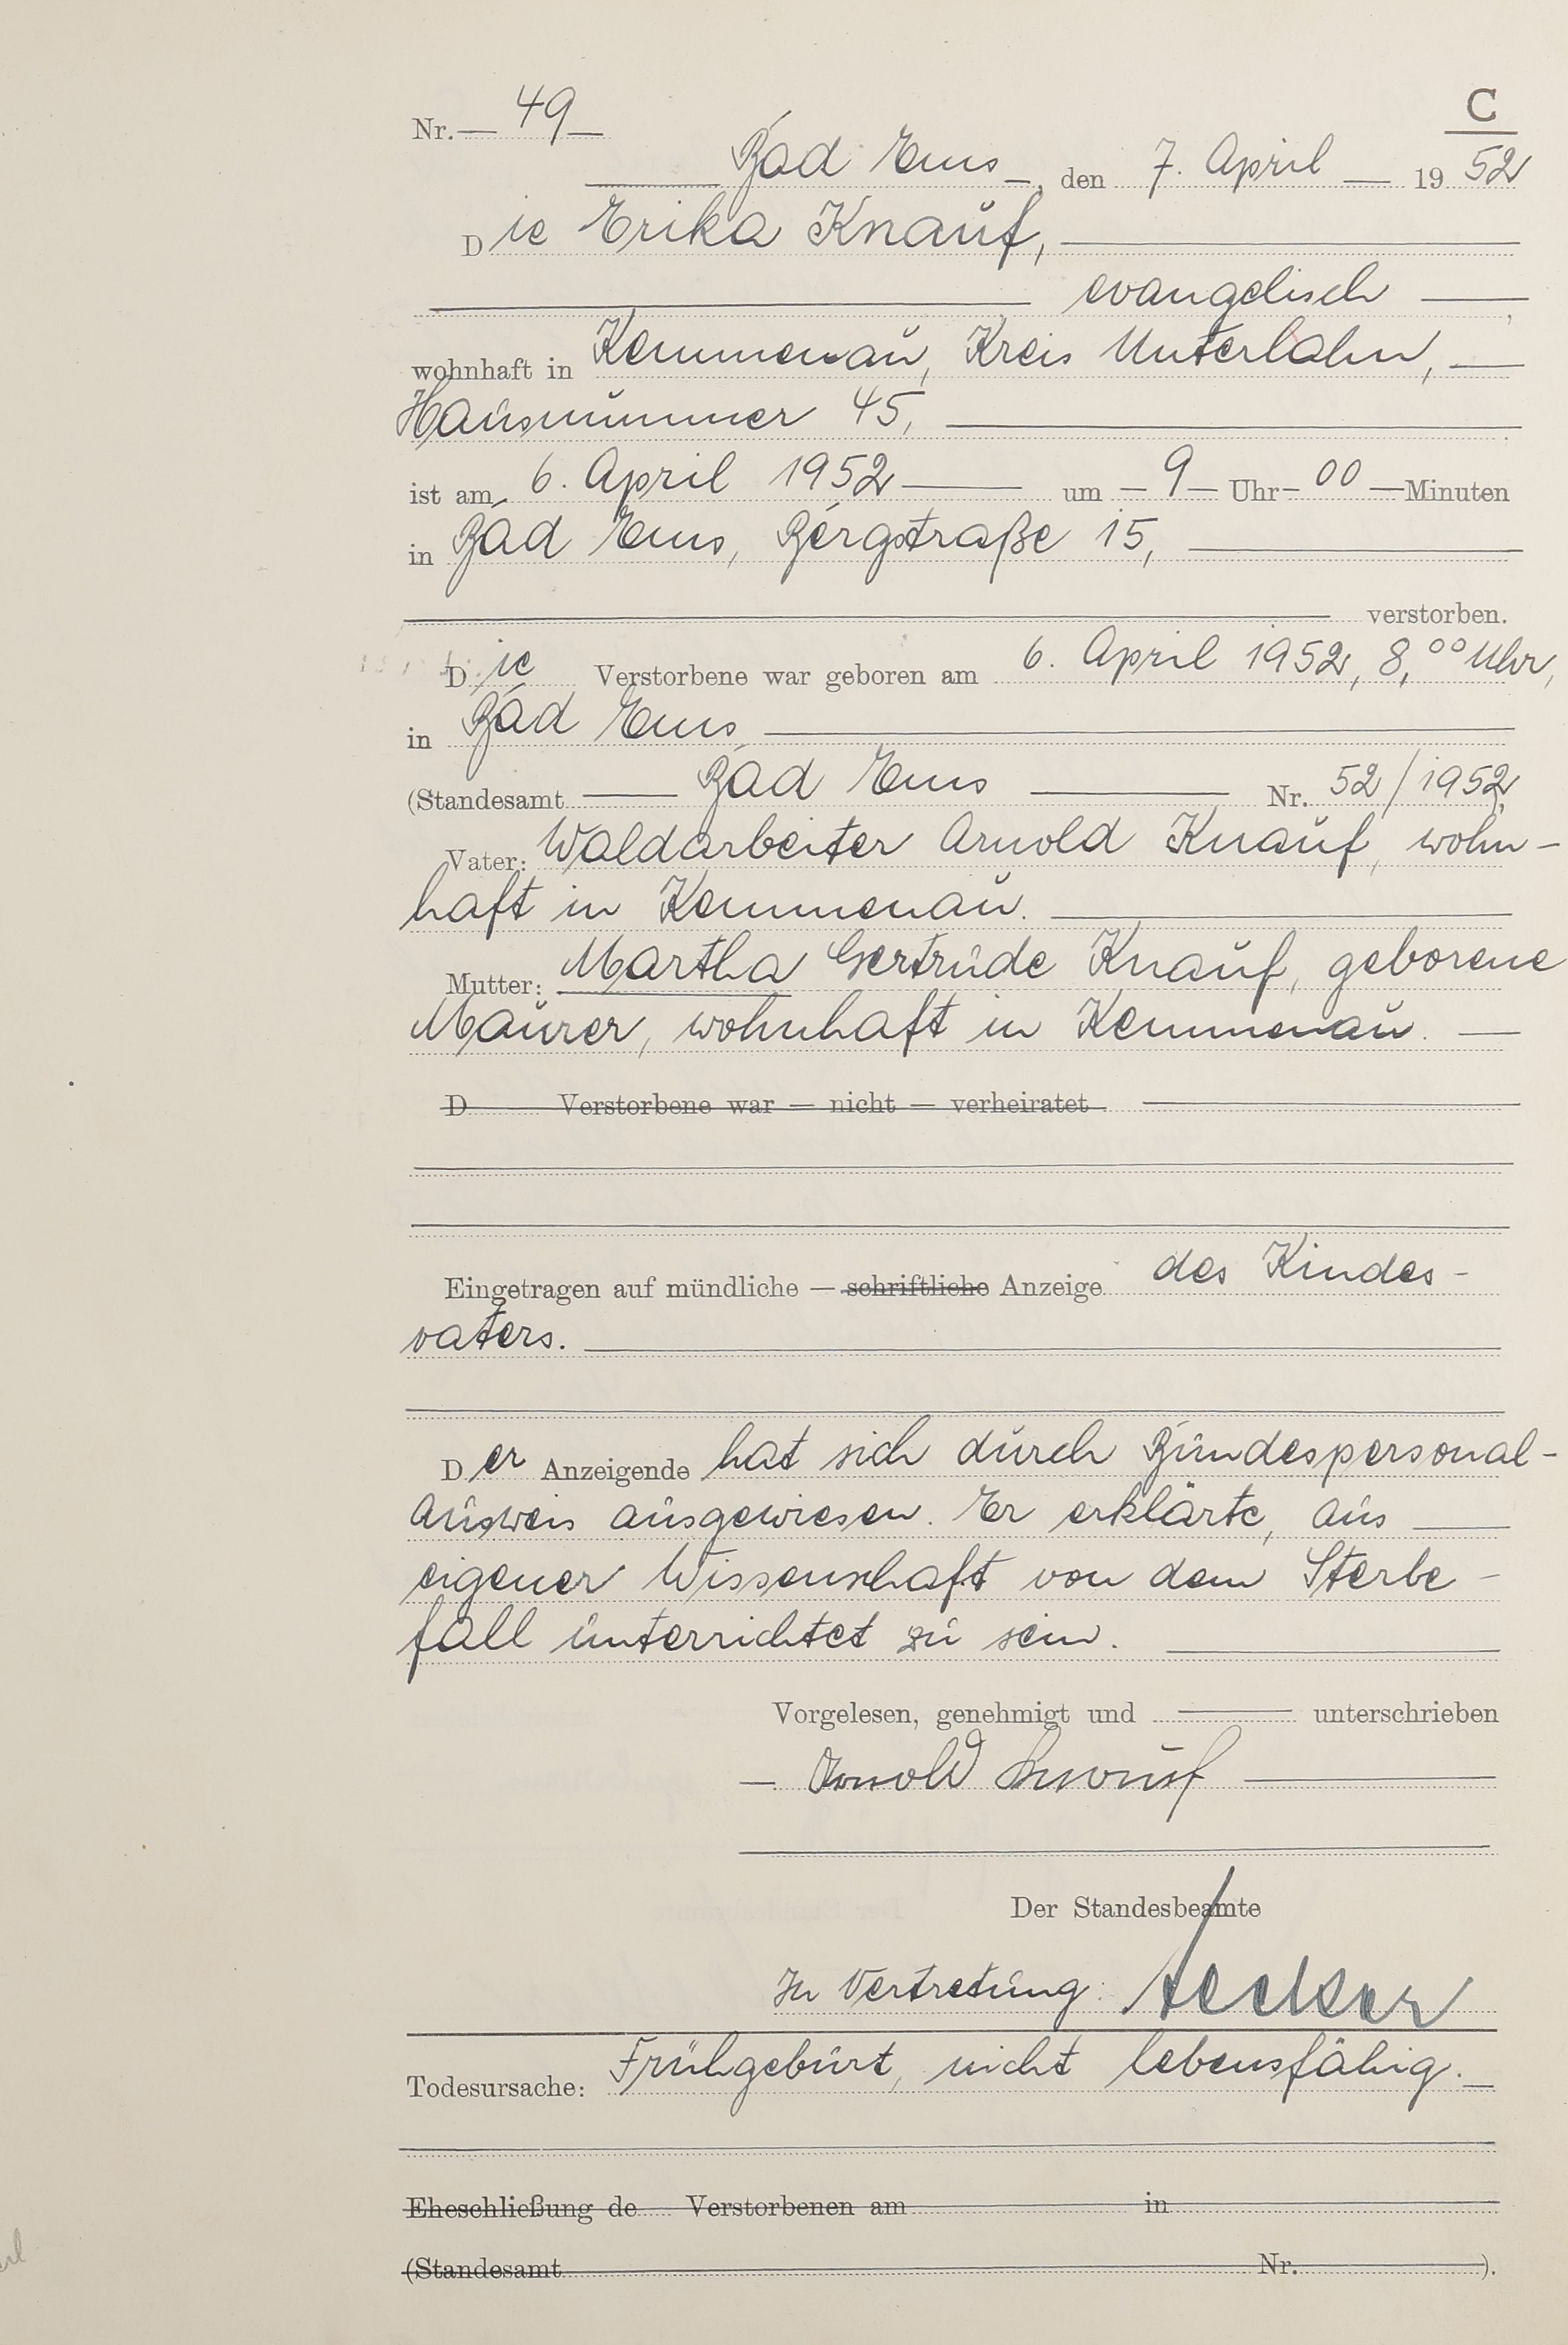 C
Nr. 49
Bad Ems, den 7. April 1952
Die Erika Knauf,
evangelisch,
wohnhaft in Kemmenau, Kreis Unterlahn,
Hausnummer 45,
ist am 6. April 1952 um 9 Uhr 00 Minuten
in Bad Ems, Bergstraße 15,
verstorben.
Die Verstorbene war geboren am 6. April 1952, 8,00 Uhr,
in Bad Ems
(Standesamt Bad Ems Nr. 52/1952)
Vater: Waldarbeiter Arnold Knauf, wohn-
haft in Kemmenau.
Mutter: Martha Gertrude Knauf, geborene
Maurer, wohnhaft in Kemmenau.
D Verstorbene war — nicht — verheiratet
Eingetragen auf mündliche — schriftliche Anzeige des Kindes-
vaters.
Der Anzeigende hat sich durch Bundespersonal-
ausweis ausgewiesen. Er erklärte, aus
eigener Wissenschaft von dem Sterbe-
fall unterrichtet zu sein.
Vorgelesen, genehmigt und unterschrieben
Arnold Knauf
Der Standesbeamte
In Vertretung:
Todesursache: Frühgeburt, nicht lebensfähig.
Eheschließung de Verstorbenen am in
(Standesamt Nr. ).